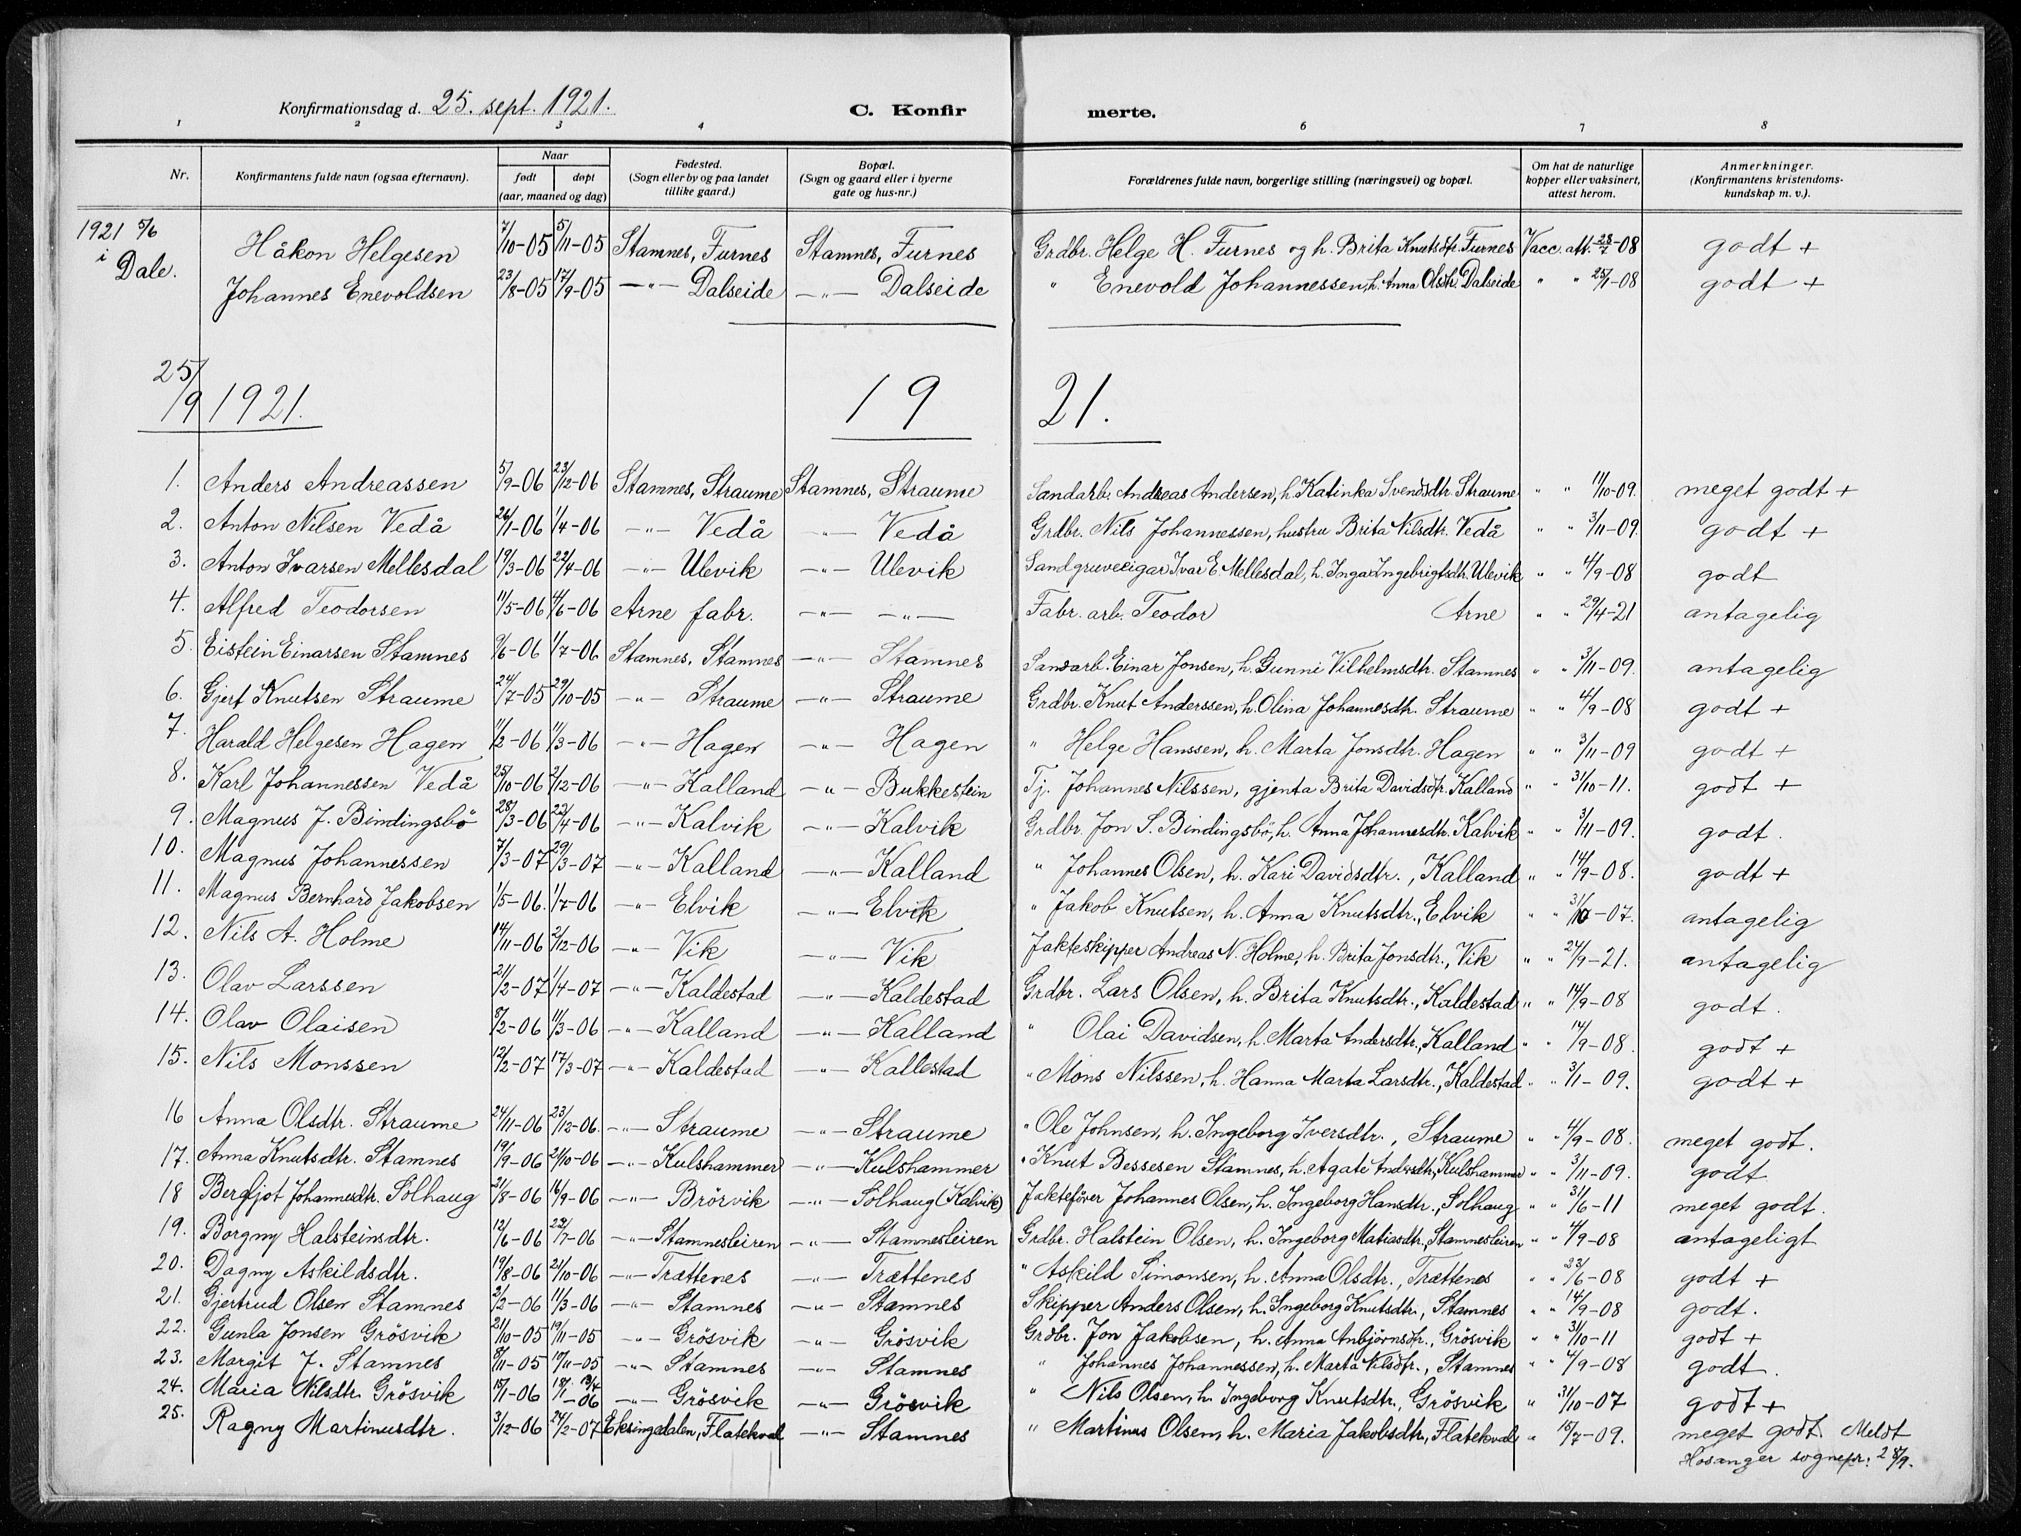 Konfirmationsdag d. 25. sept. 1921. C. Konfir merte.
1 2 3 4 6 7 8
Nr. Konfirmantens fulde navn (ogsaa efternavn). Naar født døpt (aar, maaned og dag) Fødested. (Sogn eller by og paa landet tillike gaard.) Bopæl. (Sogn og gaard eller i byerne gate og hus-nr.) Forældrenes fulde navn, borgerlige stilling (næringsvei) og bopæl. Om hat de naturlige kopper eller vaksinert, attest herom. Anmerkninger. (Konfirmantens kristendomskundskap m. v.).
1921 5/6 i Dale. Håkon Helgesen 7/10-05 5/11-05 Stamnes, Furnes Stamnes, Furnes Grdbr. Helge H. Furnes og h. Brita Knutsdtr. Furnes Vacc. att. 23/7-08 godt +
Johannes Enevoldsen 23/8-05 17/9-05 -"- Dalseide -"- Dalseide " Enevold Johannessen, h. Anna Olsdtr. Dalseide " " 25/1-08 godt +
25/9 1921. 19 21.
1. Anders Andreassen 5/9-06 23/12-06 Stamnes, Straume Stamnes, Straume Sandarb. Andreas Andersen, h. Katinka Svendsdtr. Straume " " 11/10-09. meget godt +
2. Anton Nilsen Vedå 26/1-06 1/4-06 -"- Vedå -"- Vedå Grdbr. Nils Johannessen, hustru Brita Nilsdtr. Vedå " " 3/11-09. godt +
3. Anton Ivarsen Mellesdal 19/3-06 22/4-06 -"- Ulevik -"- Ulevik Sandgruveeigar Ivar E. Mellesdal, h. Inga Ingebrigtsdtr. Ulevik " " 4/9-08 godt
4. Alfred Teodorsen 11/5-06 4/6-06 Arne fabr. -"- -"- Fabr. arb. Teodor Arne " " 29/4-21 antagelig
5. Eistein Einarsen Stamnes 9/6-06 1/7-06 Stamnes, Stamnes -"- Stamnes Sandarb. Einar Jonsen, h. Gunni Vilhelmsdtr. Stamnes " " 3/11-09. antagelig
6. Gjert Knutsen Straume 24/7-05 29/10-05 -"- Straume -"- Straume Grdbr. Knut Anderssen, h. Olina Johannesdtr. Straume " " 4/9-08 godt +
7. Harald Helgesen Hagen 11/2-06 11/3-06 -"- Hagen -"- Hagen " Helge Hanssen, h. Marta Jonsdtr. Hagen " " 3/11-09 godt +
8. Karl Johannessen Vedå 25/10-06 2/12-06 -"- Kalland -"- Bukkestein Tj. Johannes Nilssen, gjenta Brita Davidsdtr. Kalland " " 31/10-11. godt +
9. Magnus J. Bindingsbö 28/3-06 22/4-06 -"- Kalvik -"- Kalvik Grdbr. Jon S. Bindingsbö, h. Anna Johannesdtr. Kalvik " " 3/11-09. godt.
10. Magnus Johannessen 7/3-07 29/3-07 -"- Kalland -"- Kalland " Johannes Olsen, h. Kari Davidsdtr., Kalland " " 14/9-08. godt +
11. Magnus Bernhard Jakobsen 1/5-06. 1/7-06 -"- Elvik -"- Elvik " Jakob Knutsen, h. Anna Knutsdtr., Elvik " " 3/10-07. antagelig
12. Nils A. Holme 14/11-06 2/12-06 -"- Vik -"- Vik Jakteskipper Andreas N. Holme, h. Brita Jonsdtr., Vik " " 24/9-21. antagelig
13. Olav Larssen 21/2-07 1/4-07 -"- Kaldestad -"- Kaldestad Grdbr. Lars Olsen, h. Brita Knutsdtr., Kaldestad " " 14/9-08 godt.
14. Olav Olaisen 8/2-06 11/3-06 -"- Kalland -"- Kalland " Olai Davidsen, h. Marta Andersdtr., Kalland " " 14/9-08. godt +
15. Nils Monssen 12/2-07 17/3-07 -"- Kaldestad -"- Kallestad " Mons Nilssen, h. Hanna Marta Larsdtr., Kaldestad " " 3/11-09. godt +
16 Anna Olsdtr. Straume 24/11-06 23/12-06. -"- Straume -"- Straume " Ole Johnsen, h. Ingeborg Iversdtr., Straume " " 4/9-08. meget godt.
17. Anna Knutsdtr. Stamnes 19/9-06 21/10-06 -"- Kulshammer -"- Kulshammer " Knut Bessesen Stamnes, h. Agate Andersdtr, Kulshammer " " 3/11-09. godt
18 Bergljot Johannesdtr. Solhaug 21/8-06 16/9-06 -"- Brörvik -"- Solhaug (Kalvik) Jaktefører Johannes Olsen, h. Ingeborg Hansdtr., Solhaug " " 31/6-11 meget godt.
19. Borgny Halsteinsdtr. 12/6-06 22/7-06 -"- Stamnesleiren -"- Stamnesleiren Grdbr. Halstein Olsen, h. Ingeborg Matiasdtr., Stamnesleiren " " 4/9-08 antageligt
20. Dagny Askildsdtr. 19/8-06 21/10-06 -"- Trættenes -"- Trættenes " Askild Simonsen, h. Anna Olsdtr., Trættenes " " 23/6-08 godt +
21. Gjertrud Olsen Stamnes 2/2-06 11/3-06 -"- Stamnes -"- Stamnes Skipper Anders Olsen, h. Ingeborg Knutsdtr., Stamnes " " 14/9-08 godt.
22. Gunla Jonsen Grösvik 21/10-05 19/11-05 -"- Grösvik " Grösvik Grdbr. Jon Jakobsen, h. Anna Anbjörnsdtr., Grösvik " " 31/10-11 godt +
23. Margit J. Stamnes 8/11-05 19/11-05 -"- Stamnes -"- Stamnes " Johannes Johannessen, h. Marta Nilsdtr., Stamnes " " 4/9-08 godt.
24. Maria Nilsdtr. Grösvik 15/1-06 18/1 13/4-06 -"- Grösvik -"- Grösvik " Nils Olsen, h. Ingeborg Knutsdtr., Grösvik " 31/10-07 godt +
25. Ragny Martinusdtr. 3/12-06 24/2-07 Eksingedalen, Flatekval -"- Stamnes " Martinus Olsen, h. Maria Jakobsdtr., Flatekval " 15/7-09. meget godt. Meldt
Hosanger sognepr. 28/9.